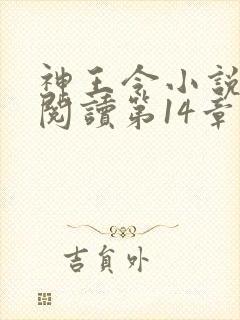 神王令小説
閱讀第14章
吉貟外